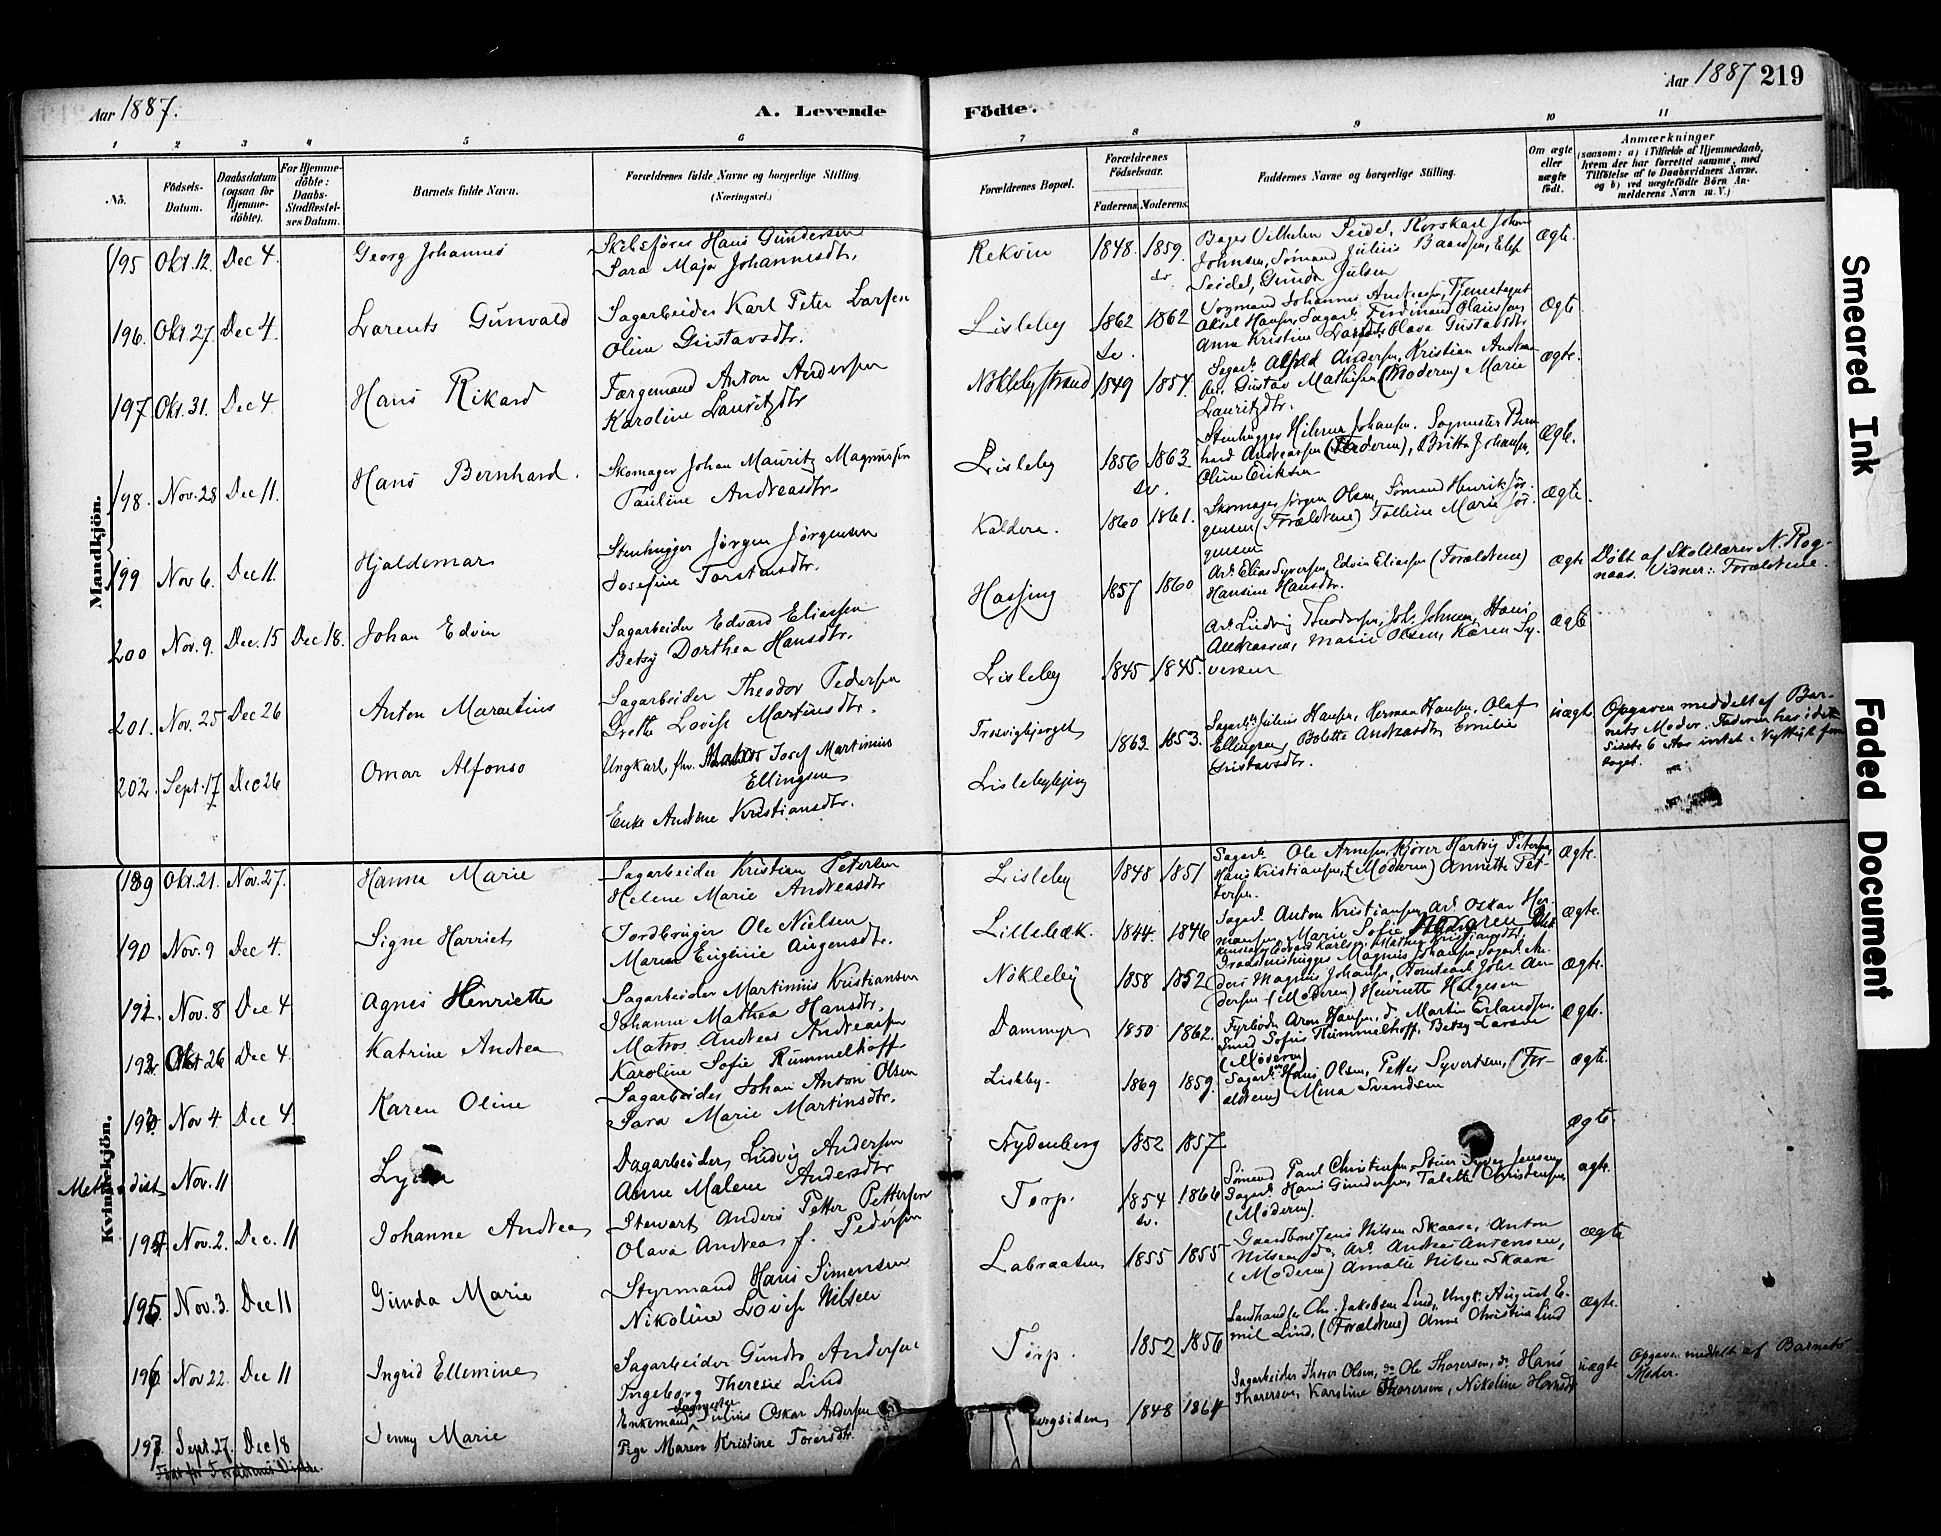 Aar 1887.
A. Levende
Fødte.
Aar 1887 219
1 2 3 4 5 6 7 8 9 10 11
No.
Födsels-Datum.
Daabsdatum (ogsaa for Hjemme-döbte).
For Hjemme-döbte: Daabs-Stadfæstel-ses Datum.
Barnets fulde Navn.
Forældrenes fulde Navne og borgerlige Stilling. (Næringsvei.)
Forældrenes Bopæl.
Forældrenes Födselsaar.
Faderens. Moderens.
Faddernes Navne og borgerlige Stilling.
Om ægte eller uægte födt.
Anmærkninger
(saasom: a) i Tilfælde af Hjemmedaab,
hvem der har forrettet samme, med
Tilföielse af to Daabsvidners Navne.
og b) ved uægtefödte Börn An-
melderens Navn m. V.)
Mandkjön.
195 Okt. 12. Dec 4. Georg Johannes
Skibsfører Hans Gundersen
Sara Maja Johannesdtr.
Rekvin 1848. 1859.
Bager Vilhelm Seidel, Korskarl Johan
Johnsen, Sømand Julius Baardsen, Elef.
Seidel, Gunda Julsen
ægte.
196. Okt. 27. Dec 4. Lorents Gunvald
Sagarbeider Karl Peter Larsen
Oline Gustavsdtr.
Lisleby 1862 1862
Vogmand Johannes Andreasen, Tjenestegut
Aksel Hansen, Sagarb. Ferdinand Olausen,
Anne Kristine Larsdtr. Olava Gustavsdtr
ægte
197 Okt. 31. Dec 4. Hans Rikard
Færgemand Anton Andersen
Karoline Lauritzdtr
Nøkleby strand 1849 1854.
Sagarb. Alfred Andersen, Kristian Andrea-
sen, Gustav Mathisen (Moderen) Marie
Lauritzdtr.
ægte.
198. Nov. 28 Dec 11. Hans Bernhard.
Skomager Johan Mauritz Magnussen
Pauline Andreasdtr
Lisleby 1856 1863
Stenhugger Hilmer Johansen. Sogmester Bern
hard Andreassen (Faderen), Britta Johansen,
Oline Eriksen
ægte.
199 Nov 6. Dec 11. Hjaldemar
Stenhugger Jørgen Jørgensen
Josefine Torstensdtr.
Kaldera. 1860 1861.
Skomager Jørgen Olsen, Sømand Henrik Jør-
gensen (Forældrene) Talline Marie Jør-
gensen
ægte.
200 Nov. 9. Dec. 15 Dec 18. Johan Edvin
Sagarbeider Edvard Eliassen
Betsy Dorthea Hansdtr.
Hassing 1857 1860
Arb. Elias Syversen, Edvin Eliassen (Forældrene)
Hansine Hansdtr.
ægte
Døbt af Skolelærer N. Rog-
naas. Vidner: Forældrene.
201. Nov. 25 Dec 26 Anton Maratius
Sagarbeider Theodor Pedersen
Grethe Lovise Martinsdtr.
Lisleby 1845 1845.
Arb. Ludvig Theodorsen, Joh. Johnsen, Hans
Andreassen, Marie Olsen, Karen Sy-
versen
ægte
202. Sept. 17 Dec 26 Omar Alfonso
Ungkarl fhv. Matros Josef Martinius
Ellingsen
Enke Andrine Kristiansdtr.
Trosvigbjerget
Lislebybjerg
1863. 1853.
Sagarb. Julius Hansen, Herman Hansen, Olaf
Ellingsen, Bolette Andreasdtr, Emilie
Gustavsdtr.
uægte
Opgaven meddelt af Bar-
nets Moder. Faderen har i det
sidste 6 Aar intet Nyttigt fore-
taget.
Kvindekjön.
189 Okt. 21. Nov. 27. Hanna Marie
Sagarbeider Kristian Petersen
Helene Marie Andreasdtr
Lisleby 1848 1851
Sagarb. Ole Arnesen, Kjører Hartvig Petersen,
Hans Kristiansen, (Moderen) Annette Pet-
tersen.
ægte.
190 Nov. 9 Dec 4. Signe Harriet
Jordbruger Ole Nielsen
Maren Eugenie Augensdtr.
Lillebæk. 1844. 1846
Sagarb. Anton Kristiansen, Arb. Oskar Her-
mansen, Marie Sofie
ægte.
191. Nov. 8 Dec 4 Agnes Henriette
Sagarbeider Martinius Kristiansen
Johanne Mathea Hansdtr.
Nøkleby 1858 1852
Graastenshugger Magnus Johansen, Sagarb. An-
ders Magnus Johansen, Tomtearb. Johs. An-
dersen (Moderen) Henriette Helgesen
ægte.
192 Okt 26 Dec 4. Katrine Andrea
Matros Andreas Andreassen
Karoline Sofie Rummelhoff
Dammyr 1850 1862.
Fyrbøder Aron Hansen, d. Martin Erlandsen,
Smed Sofus Rummelhoff, Betsy Larsen
(Moderen)
ægte.
193. Nov 4 Dec 4 Karen Oline
Sagarbeider Johan Anton Olsen
Sara Marie Martinsdtr.
Lisleby. 1869 1859.
Sagarb. Hans Olsen, Petter Syvertsen, (For-
ældrene) Mina Svendsen
ægte.
Methodist Nov. 11 Lydia
Dagarbeider Ludvig Andersen
Anne Malene Andersdtr
Frydenberg 1852 1857
ægte.
194 Nov. 2. Dec. 11 Johanne Andrea
Stewart Anders Petter Pettersen
Olava Andrea f. Pedersen
Torp. 1854 1866
Sømand Paul Christensen, Stuer Syver Jensen,
Sagarb. Hans Gundersen, Talette Christensen,
(Moderen).
ægte.
195 Nov. 3. Dec 11 Gunda Marie
Styrmand Hans Simensen
Nikoline Lovise Nilsen
Labraaten 1855 1855
Gaardbr. Jens Nilsen Skaare, Anton
Nilsen do, Arb. Andreas Antonsen,
(Moderen) Amalie Nilsen Skaare
ægte
196 Nov 22. Dec 11 Ingrid Ellemine
Sagarbeider Gunder Andersen
Ingeborg Therese Lind
Torp. 1852 1856
Landhandler Chr. Jakobsen Lind, Ungk. August E-
mil Lind, (Forældrene) Anne Christine Lind
ægte.
197. Sept. 27. Dec 18 Jenny Marie
Enkemand Sagmester Julius Oskar Andersen
Pige Maren Kristine Toversdtr.
ergsiden 1848 1864
Sagarbeider Thorer Olsen, do Ole Thorersen, do. Hans
Thorersen, Karoline Thorersen, Nikoline Hansdtr
uægte
Opgaven meddelt af Barnets
Moder.
Smeared Ink
Faded Document